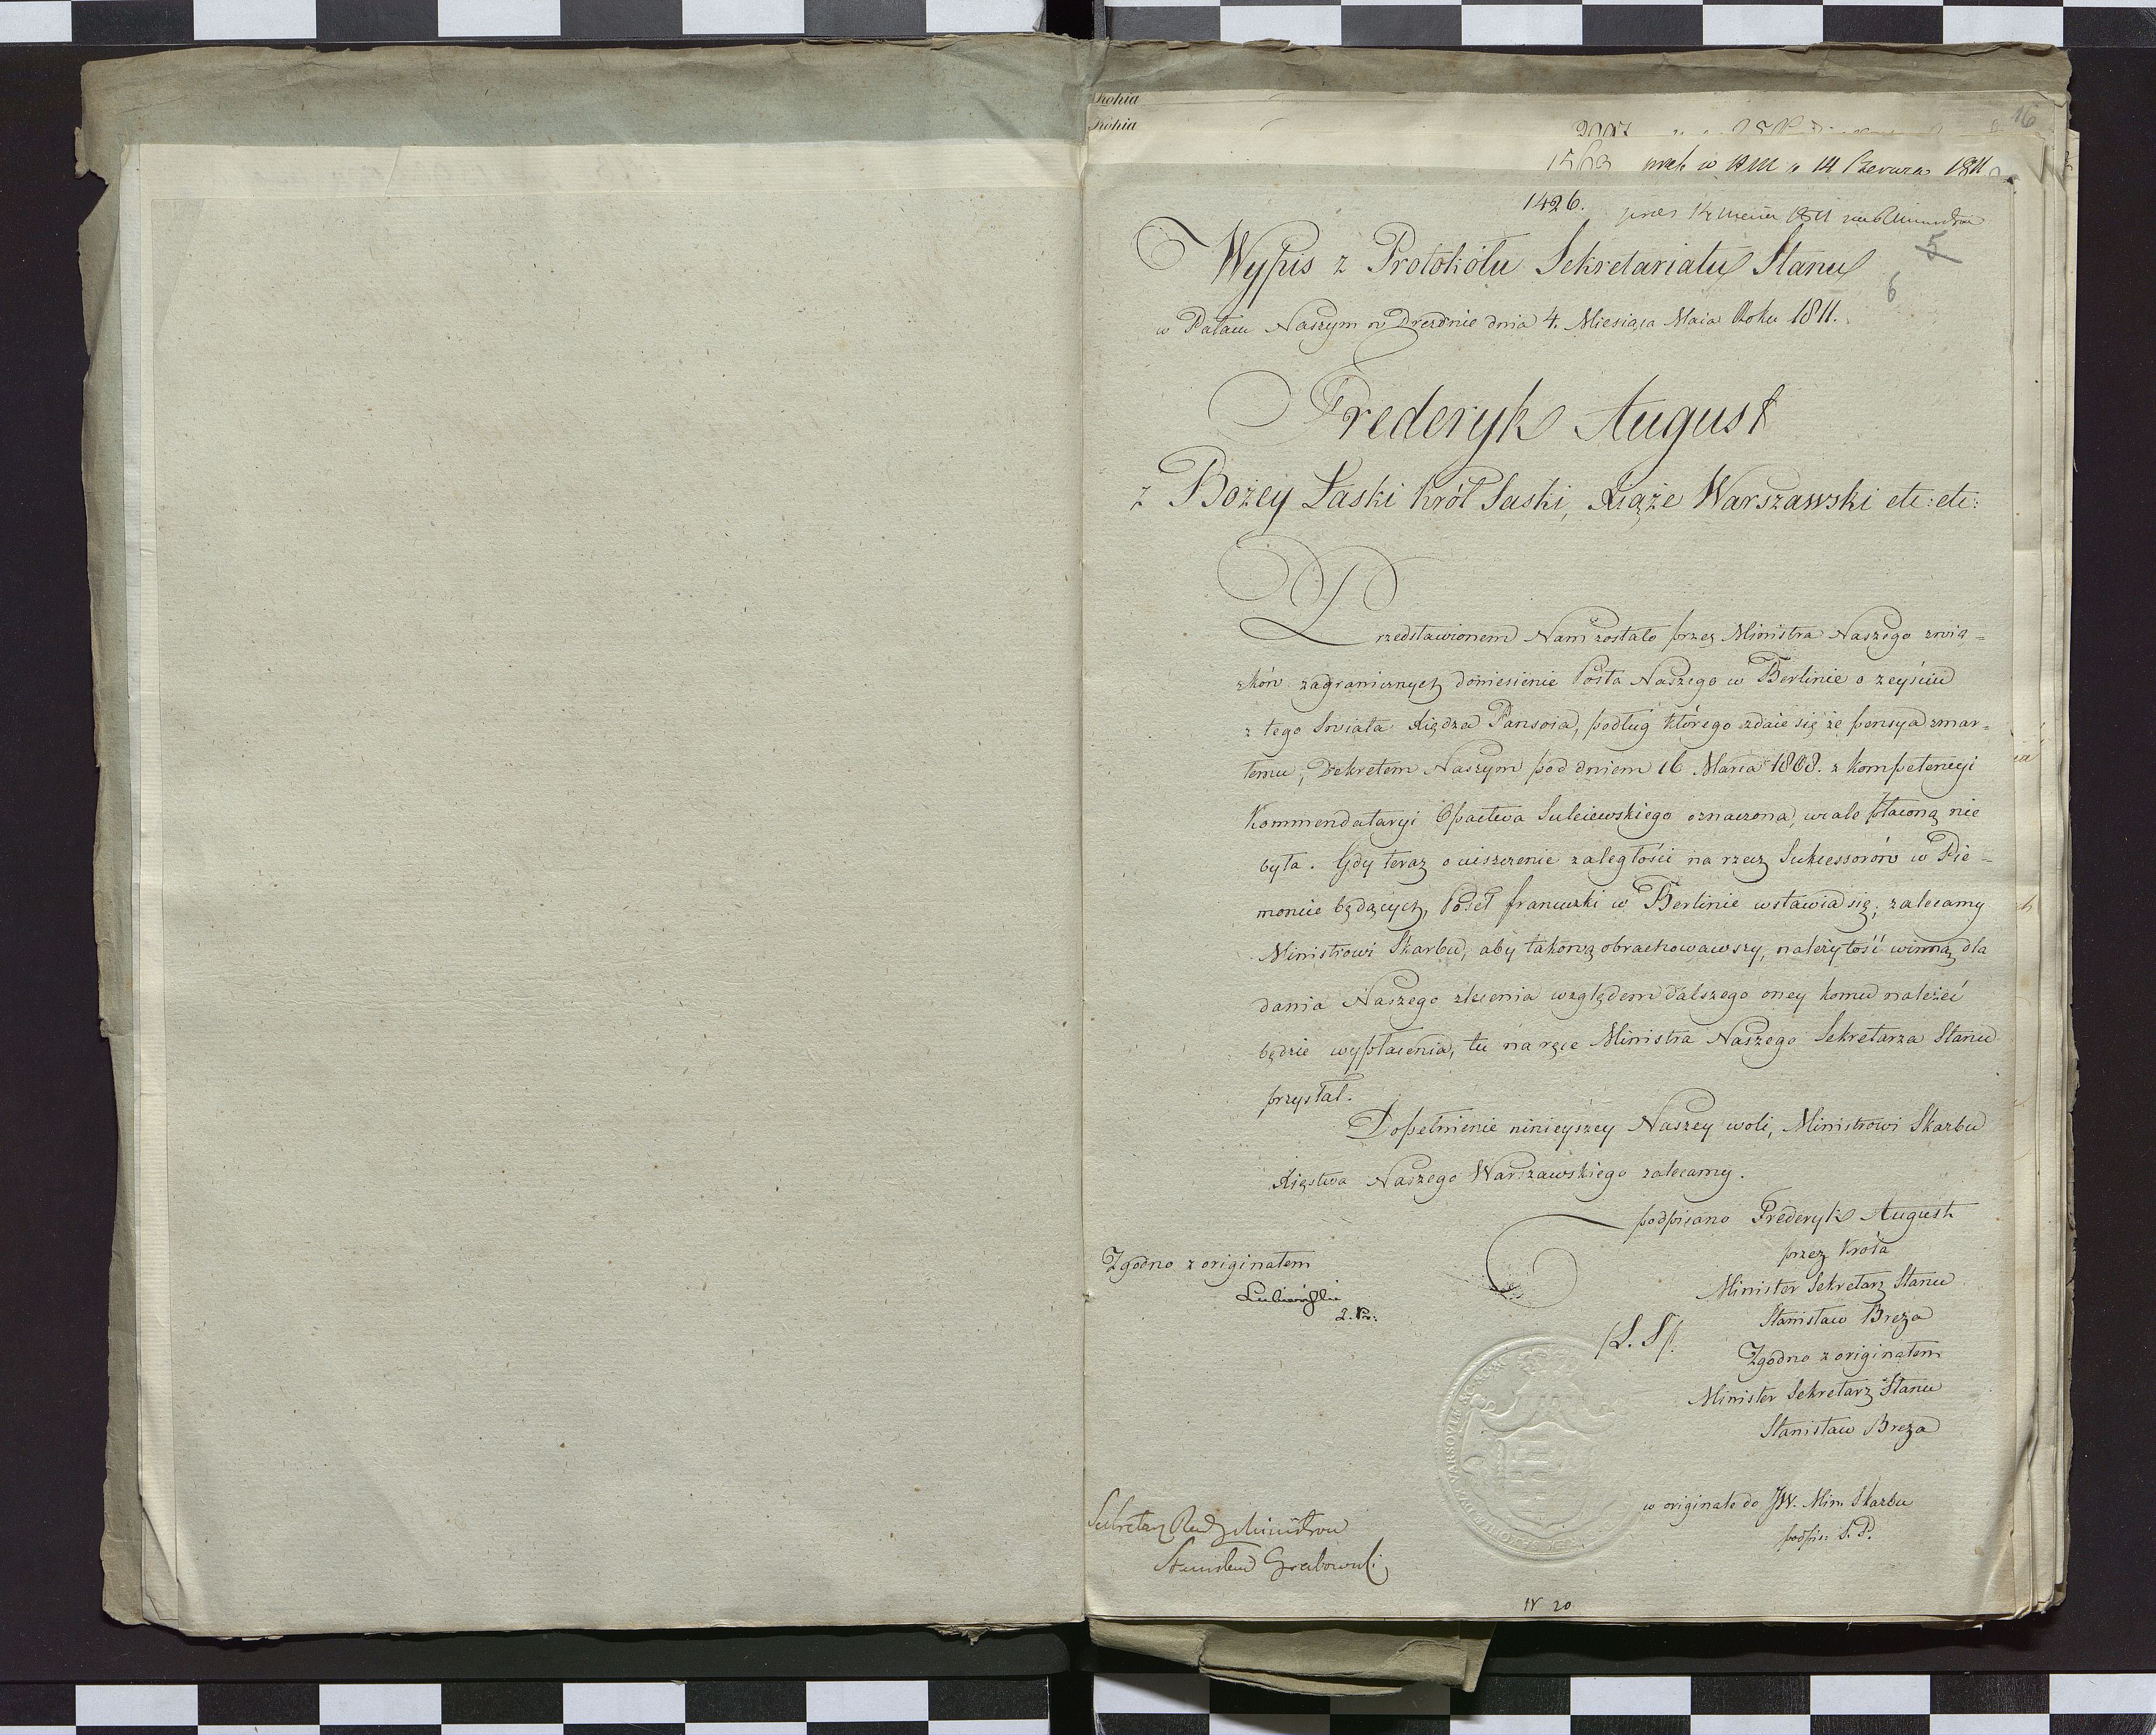 Kopia
Kopia
16
14 Czerwca 1811
1426.
5
6
Wypis z Protokółu Sekretariatu Stanu
w Pałacu Naszym w Dreznie dnia 4. Miesiąca Maia Roku 1811.
Frederyk August
z Bożey Łaski Król Saski, Xiąże Warszawski etc: etc:
Przedstawionem Nam zostało przez Ministra Naszego zwią=
zków zagranicznych doniesienie Posła Naszego w Berlinie o zeyściu
z tego Swiata Xiędza Pansoia, podług którego zdaie się że pensya zmar=
łemu, Dekretem Naszym pod dniem 16 Marca 1808. z kompetencyi
Kommendataryi Opactwa Suleiewskiego oznaczona, wcale płaconą nie
była. Gdy teraz o uiszczenie zaległości na rzecz Sukcessorów w Pie=
moncie będących, Poseł francuzki w Berlinie wstawia się; zalecamy
Ministrowi Skarbu, aby takową obrachowawszy, należytość winną, dla
dania Naszego zlecenia względem dalszego oney komu należeć
będzie wypłacenia, tu na ręce Ministra Naszego Sekretarza Stanu
przysłał.
Dopełnienie ninieyszey Naszey woli, Ministrowi Skarbu
Xięstwa Naszego Warszawskiego zalecamy.
podpisano Frederyk August
przez Króla
Minister Sekretarz Stanu
Stanisław Breza
/L. S/.
Zgodno z originałem
Minister Sekretarz Stanu
Stanisław Breza
Zgodno z originałem
Lubieński
w originale do JW. Min. Skarbu
podpis: S. P.
Sekretarz Rady Ministrów
Stanisław Grabowski
N 20